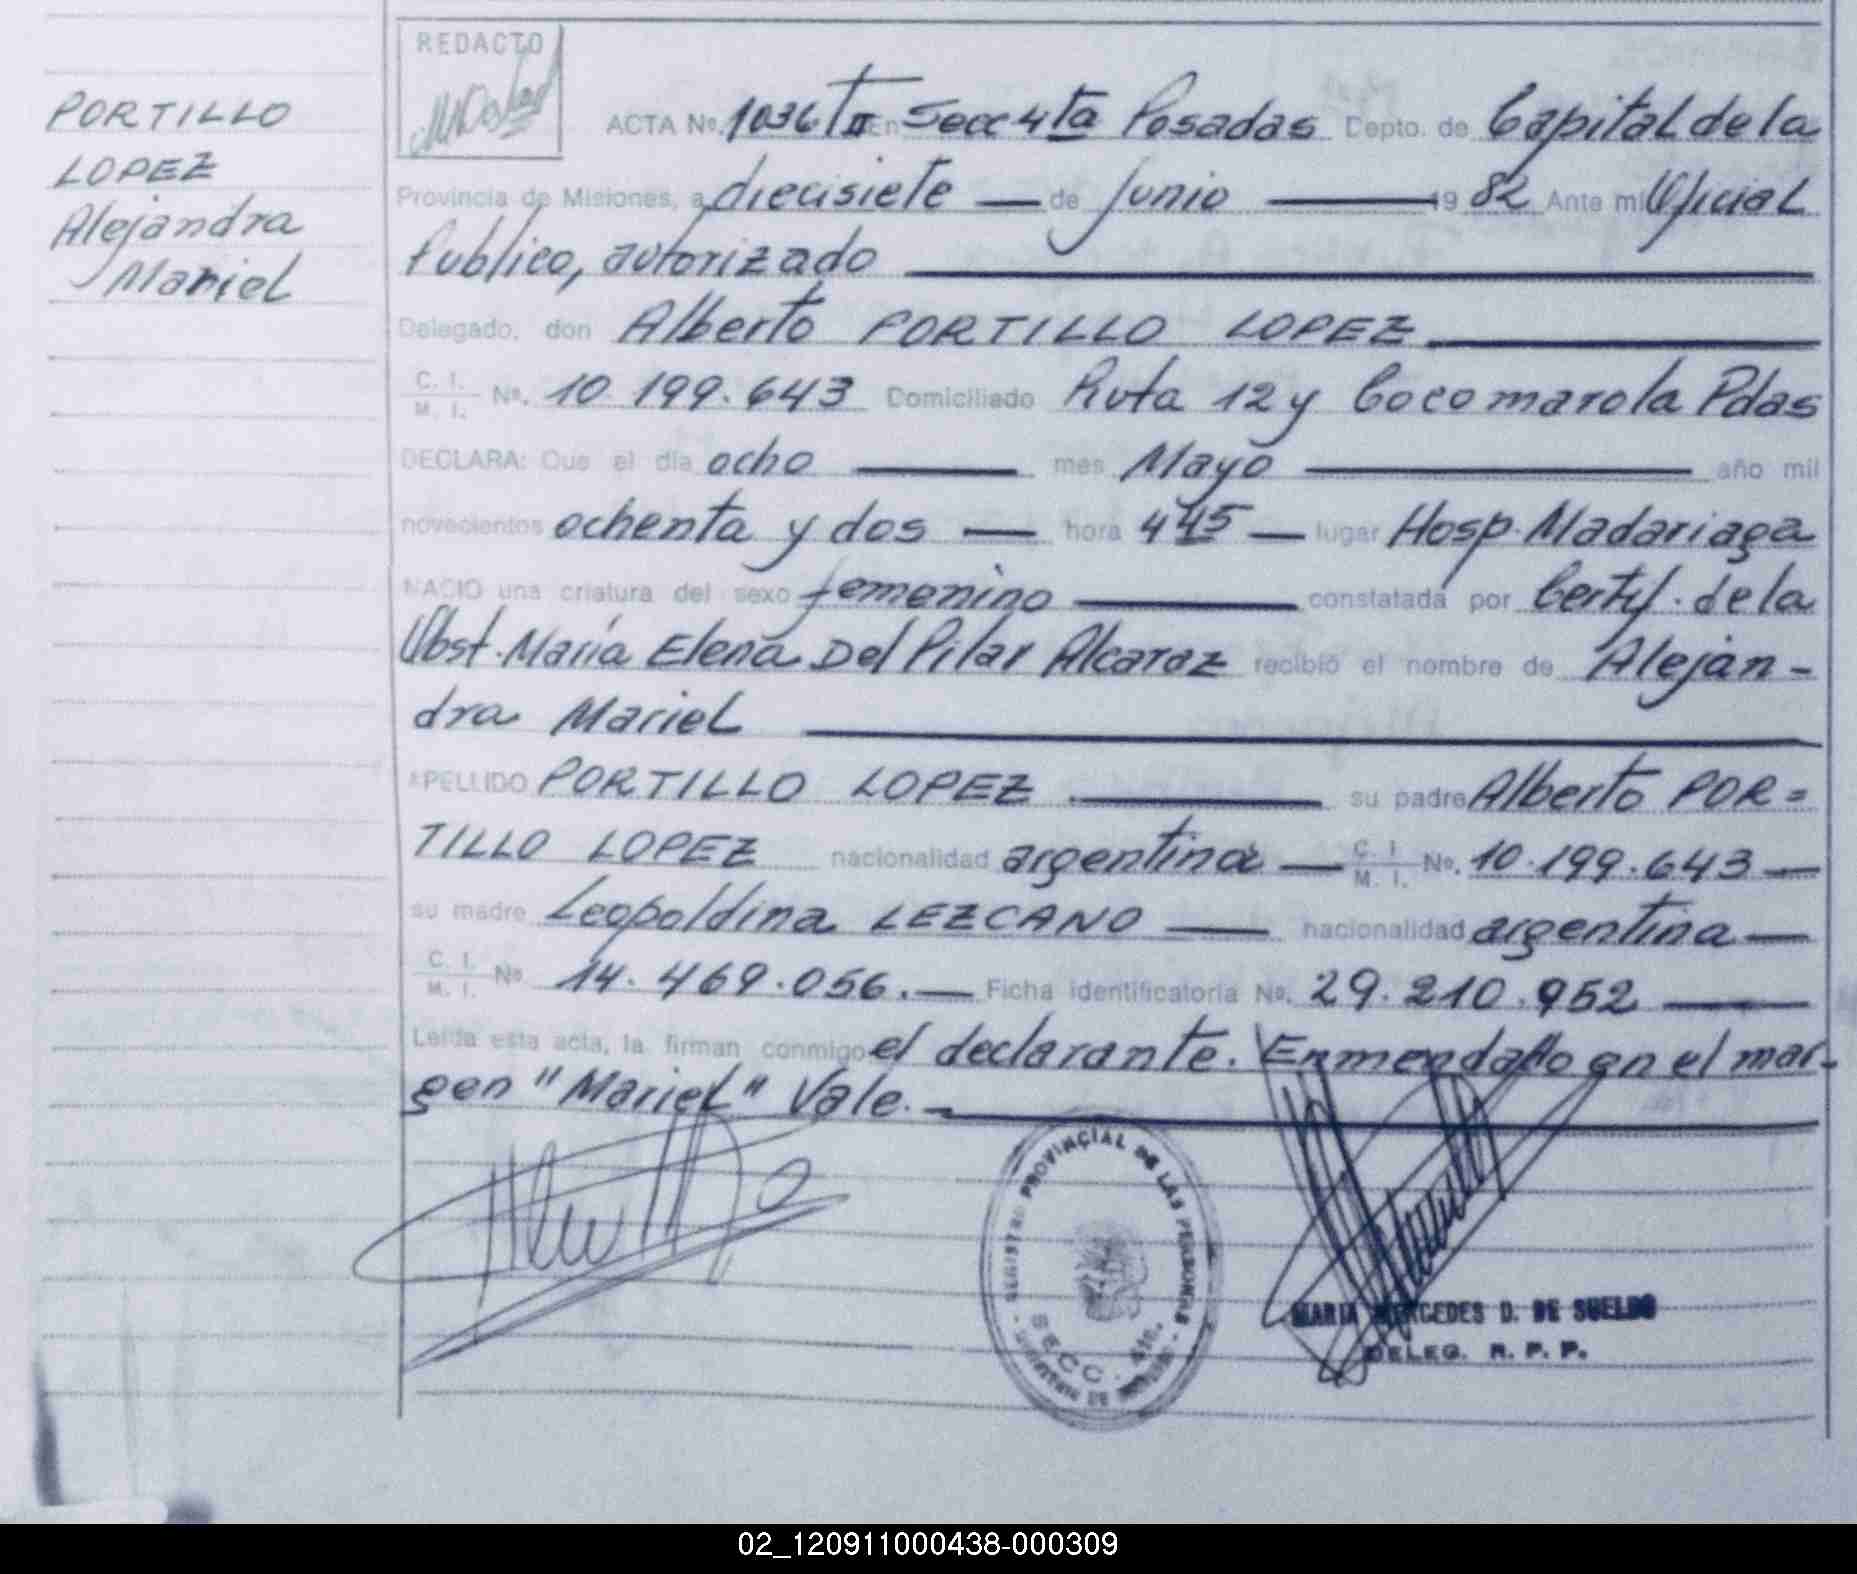 PORTILLO
LOPEZ
Alejandra
Mariel
REDACTO
ACTA No. 1036 T II En Secc 4ta Posadas Depto. de Capital de la
Provincia de Misiones, a diecisiete — de Junio — 19 82 Ante mi Oficial
Publico, autorizado
Delegado, don Alberto PORTILLO LOPEZ
C. I. M. I. No. 10.199.643 Domiciliado Ruta 12 y Cocomarola Pdas
DECLARA: Que el día ocho — mes Mayo — año mil
novecientos ochenta y dos — hora 4 45 — lugar Hosp. Madariaga
NACIO una criatura del sexo femenino — constatada por Certif. de la
Obst. María Elena Del Pilar Alcaraz recibió el nombre de Alejan-
dra Mariel
APELLIDO PORTILLO LOPEZ — su padre Alberto POR=
TILLO LOPEZ nacionalidad argentina — C. I. M. I. No. 10.199.643 —
su madre Leopoldina LEZCANO — nacionalidad argentina —
C. I. M. I. No. 14.469.056. — Ficha identificatoria No. 29.210.952 —
Leída esta acta, la firman conmigo el declarante. Enmendado en el mar-
gen "Mariel" Vale. -
REGISTRO PROVINCIAL DE LAS PERSONAS
SECC. 4ta.
MARIA MERCEDES D. DE SUELDO
DELEG. R. P. P.
02_120911000438-000309